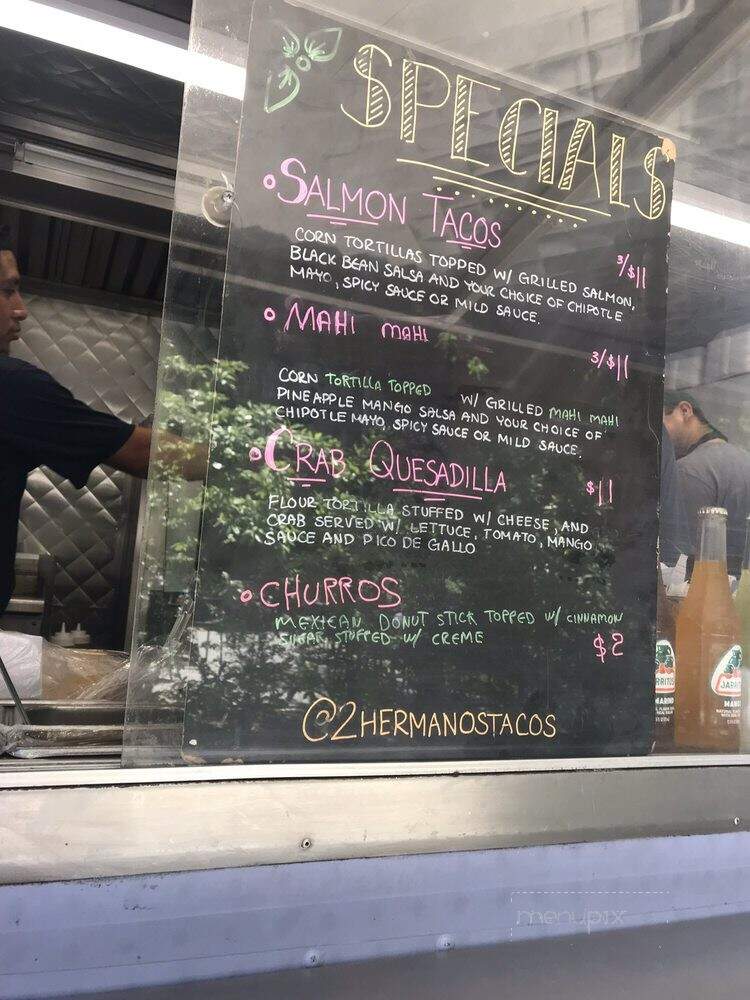 SPECIALS
SALMON TACOS
3/$11
CORN TORTILLAS TOPPED W/ GRILLED SALMON,
BLACK BEAN SALSA AND YOUR CHOICE OF CHIPOTLE
MAYO, SPICY SAUCE OR MILD SAUCE.
MAHI MAHI
3/$11
CORN TORTILLA TOPPED W/ GRILLED MAHI MAHI
PINEAPPLE MANGO SALSA AND YOUR CHOICE OF
CHIPOTLE MAYO, SPICY SAUCE OR MILD SAUCE.
CRAB QUESADILLA
$11
FLOUR TORTILLA STUFFED W/ CHEESE, AND
CRAB SERVED W/ LETTUCE, TOMATO, MANGO
SAUCE AND PICO DE GALLO
CHURROS
MEXICAN DONUT STICK TOPPED W/ CINNAMON
SUGAR STUFFED W/ CREME
$2
@2HERMANOSTACOS
menupix